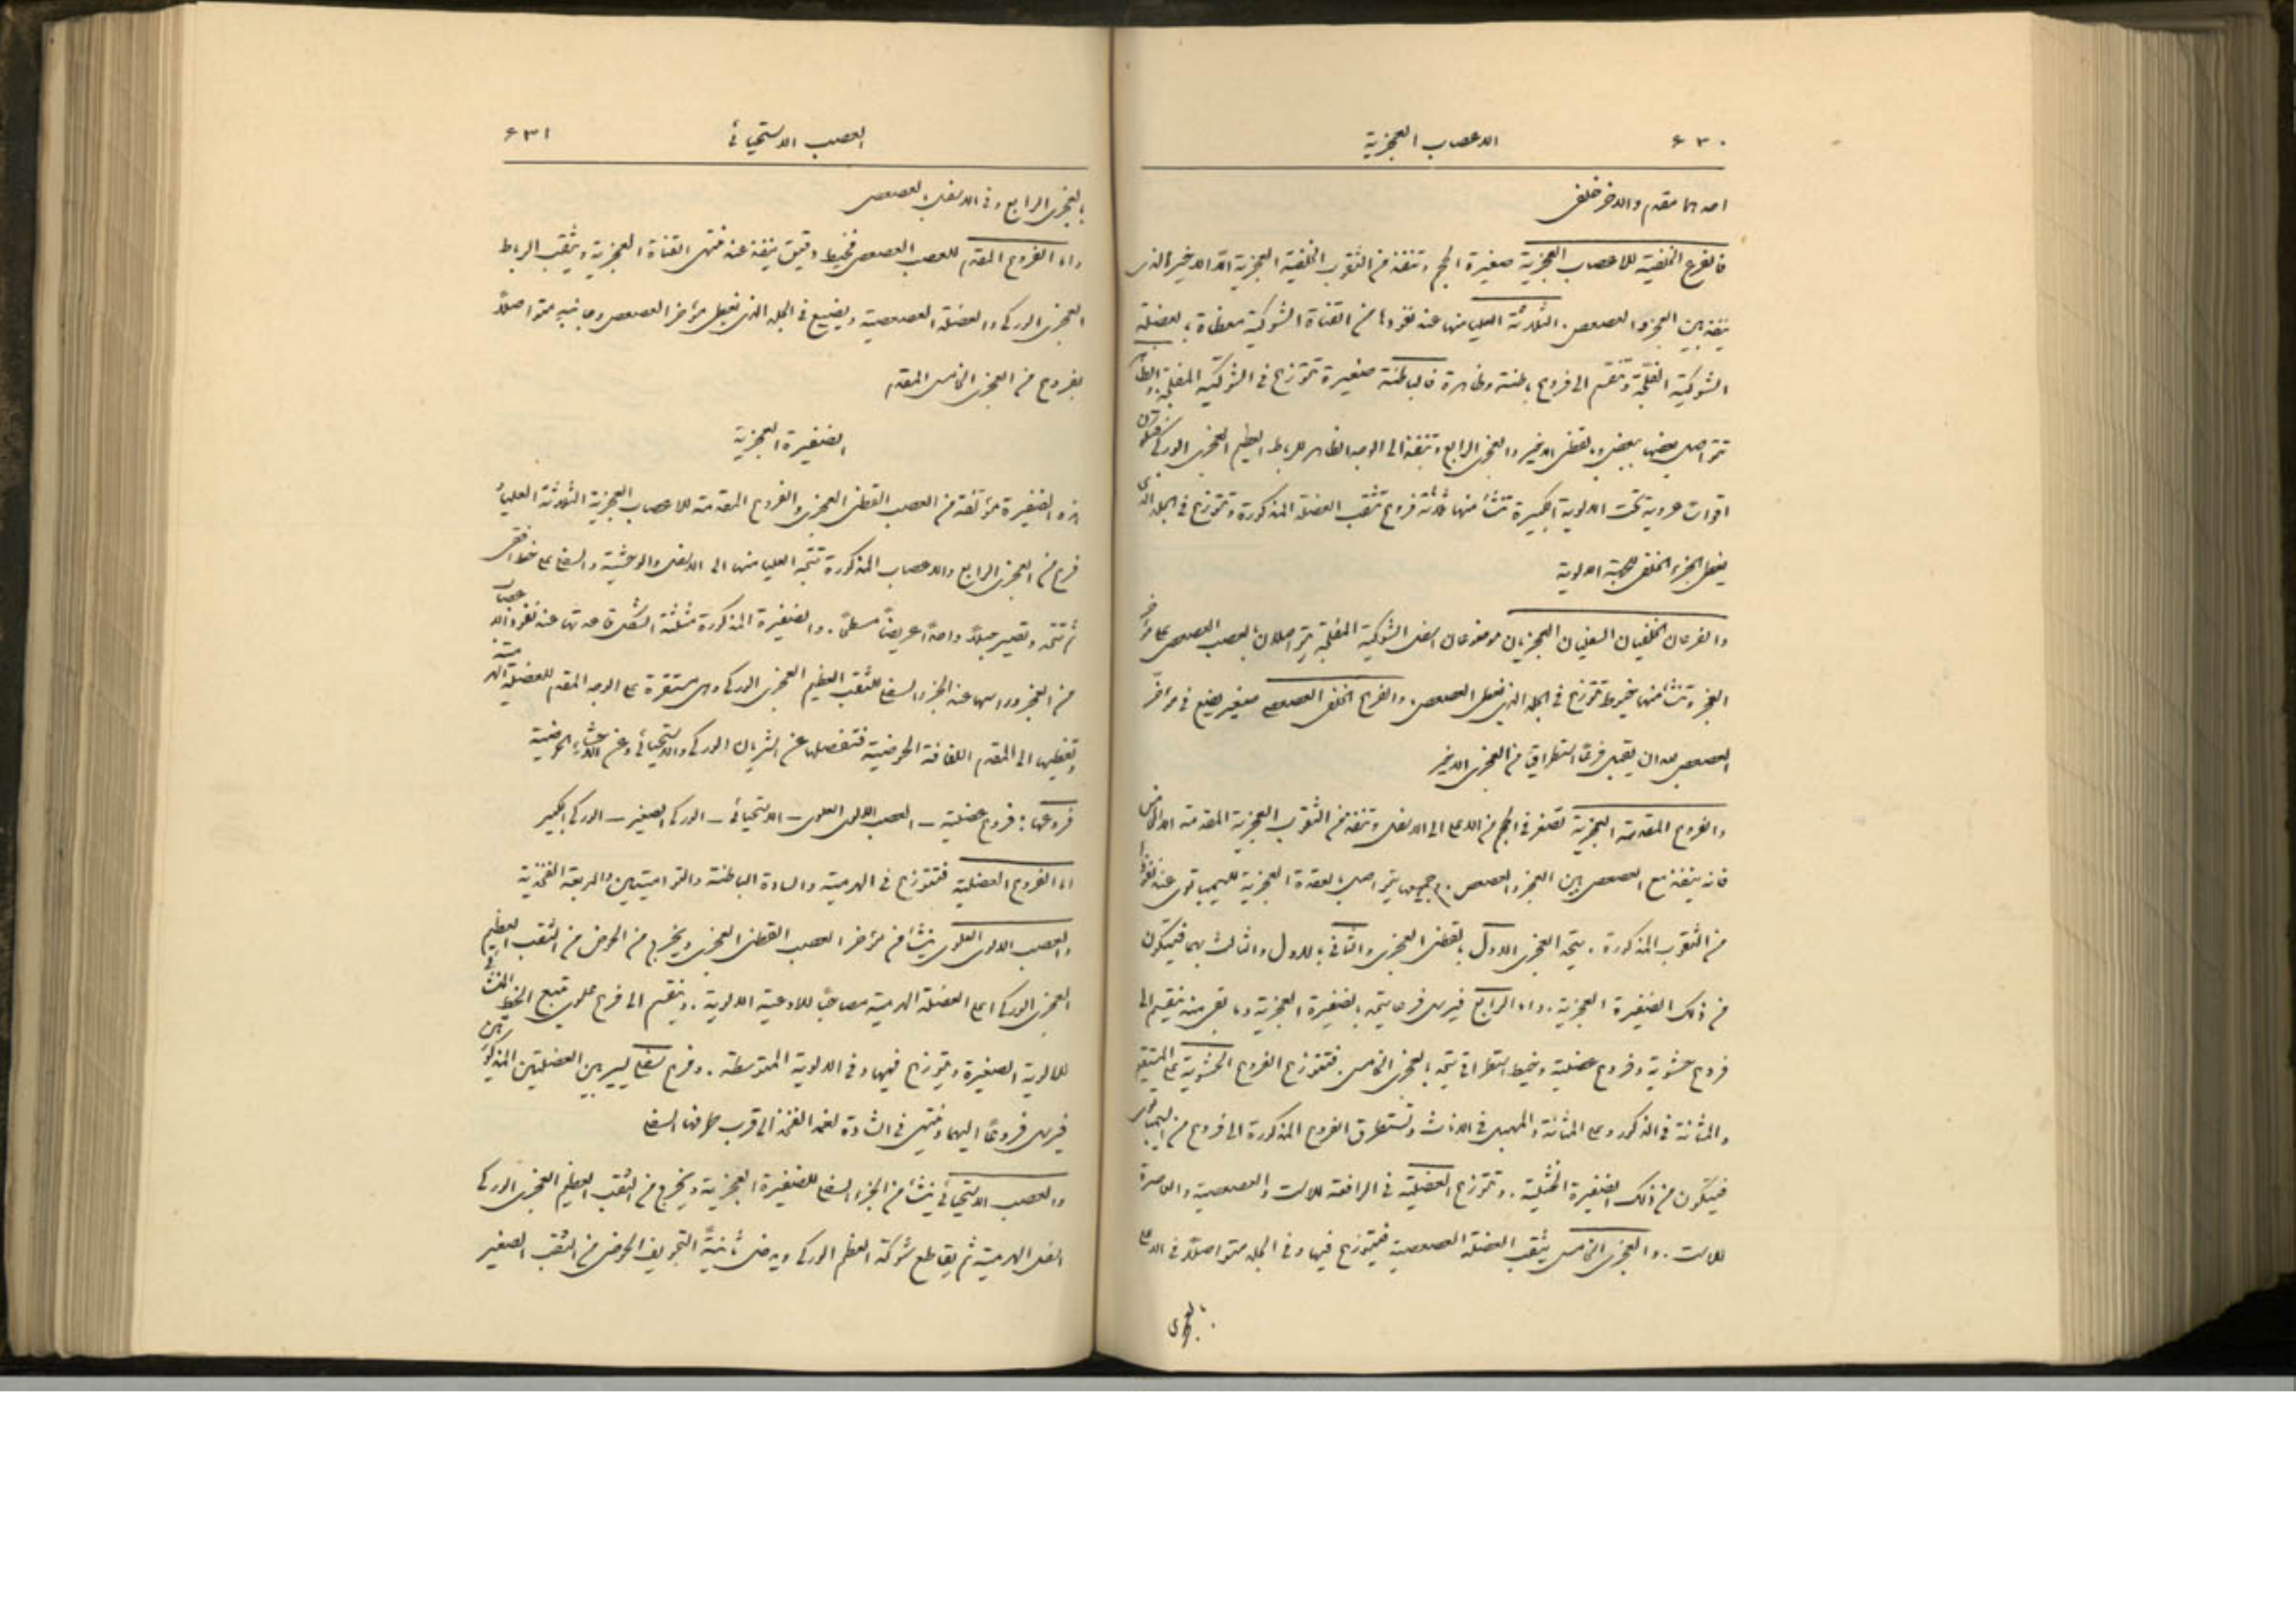 ٤٣٠
الاعصاب العجزية
احدهما مقدم والاخر خلفي
فالفروع الخلفية للاعصاب العجزية صغيرة الحجم وتنفذ من الثقوب الخلفية العجزية الا الاخير الذي
ينفذ بين العجز والعصعص. الثلاثة العليا منها عند نفوذها من القناة الشوكية مغطاة بالعضلة
الشوكية المفلجة وتنقسم الى فروع باطنة وظاهرة فالباطنة صغيرة تتوزع في الشوكية المفلجة. والظاهرة
تتواصل بعضها ببعض وبالقطني الاخير والعجزي الرابع وتنفذ الى الوجه الظاهر للرباط العظيم العجزي الوركي
اقواسا عروية تحت الالوية الكبيرة تنشأ منها ثلاثة فروع تثقب العضلة المذكورة وتتوزع في الجلد الذي
يغطي الجزء الخلفي للجهة الالوية
والفرعان الخلفيان السفليان العجزيان موضوعان اسفل الشوكية المفلجة يتواصلان بالعصب العصعصي على مؤخر
العجز وتنشأ منها خيوط تتوزع في الجلد الذي يغطي العصعص. والفرع الخلفي العصعصي صغير يضيع في مؤخر
العصعص بعد ان يقبل فرعا استطراقيا من العجزي الاخير
والفروع المقدمة العجزية تصغر في الحجم من الاعلى الى الاسفل وتنفذ من الثقوب العجزية المقدمة الا الخامس
فانه ينفذ مع العصعصي بين العجز والعصعص. وجميعها يتواصل بالعقدة العجزية للسيمباتوي عند نفوذها
من الثقوب المذكورة. يتحد العجزي الاول بالقطني العجزي والثاني بالاول والثالث بهما فيتكون
من ذلك الضفيرة العجزية. واما الرابع فيرسل فرعا يتحد بالضفيرة العجزية وما بقي منه ينقسم الى
فروع حشوية وفروع عضلية وخيط استطراقي يتحد بالعجزي الخامس. فتتوزع الفروع الحشوية على المستقيم
والمثانة في الذكور وعلى المثانة والمهبل في الاناث وتستطرق الفروع المذكورة الى فروع من السيمباتوي
فيتكون من ذلك الضفيرة الخثلية. وتتوزع العضلية في الرافعة للاست والعصعصية والعاصرة
للاست. والعجزي الخامس يثقب العضلة العصعصية فيتوزع فيها وفي الجلد متواصلاً في الاعلى
بالعجزي
العصب الاستحيائي
٤٣١
بالعجزي الرابع وفي الاسفل بالعصعصي
واما الفروع المقدم للعصب العصعصي فخيط دقيق ينفذ عند منتهى القناة العجزية ويثقب الرباط
العجزي الوركي والعضلة العصعصية ويضيع في الجلد الذي يغطي مؤخر العصعص وجانبيه متواصلاً
بفروع من العجزي الخامس المقدم
الضفيرة العجزية
هذه الضفيرة مؤلفة من العصب القطني العجزي والفروع المقدمة للاعصاب العجزية الثلاثة العليا و
فرع من العجزي الرابع والاعصاب المذكورة تتجه العليا منها الى الاسفل والوحشية والسفلى على خط افقي
ثم تتحد وتصير حبلاً واحداً عريضاً مسطحاً. والضفيرة المذكورة مثلثة الشكل قاعدتها عند نفوذ الاعصاب
من العجز وراسها عند الجزء السفلي للثقب العظيم العجزي الوركي وهي مستقرة على الوجه المقدم للعضلة الهرمية
وتغطيها الى المقدم اللفافة الحوضية فتفصلها عن الشريان الوركي والاستحيائي وعن الاحشاء الحوضية
فروعها: فروع عضلية – العصب الالوي العلوي – الاستحيائي – الوركي الصغير – الوركي الكبير
اما الفروع العضلية فتتوزع في الهرمية والسادة الباطنة والتواميتين والمربعة الفخذية
والعصب الالوي العلوي ينشأ من مؤخر العصب القطني العجزي ويخرج من الحوض من الثقب العظيم
العجزي الوركي اعلى العضلة الهرمية مصاحباً للاوعية الالوية. وينقسم الى فرع علوي يتبع الخط المنحني
للالوية الصغيرة ويتوزع فيها وفي الالوية المتوسطة. وفرع سفلي يسير بين العضلتين المذكورتين
فيرسل فروعاً اليهما وينتهي في الشادة لغمد الفخذ الى قرب طرفها السفلي
والعصب الاستحيائي ينشأ من الجزء السفلي للضفيرة العجزية ويخرج من الثقب العظيم العجزي الوركي
اسفل الهرمية ثم يقاطع شوكة العظم الوركي ويدخل ثانيةً التجويف الحوضي من الثقب الصغير